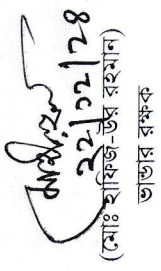 ২২/০২/২৪
(মোঃ হাফিজ-উর রহমান)
ভান্ডার রক্ষক